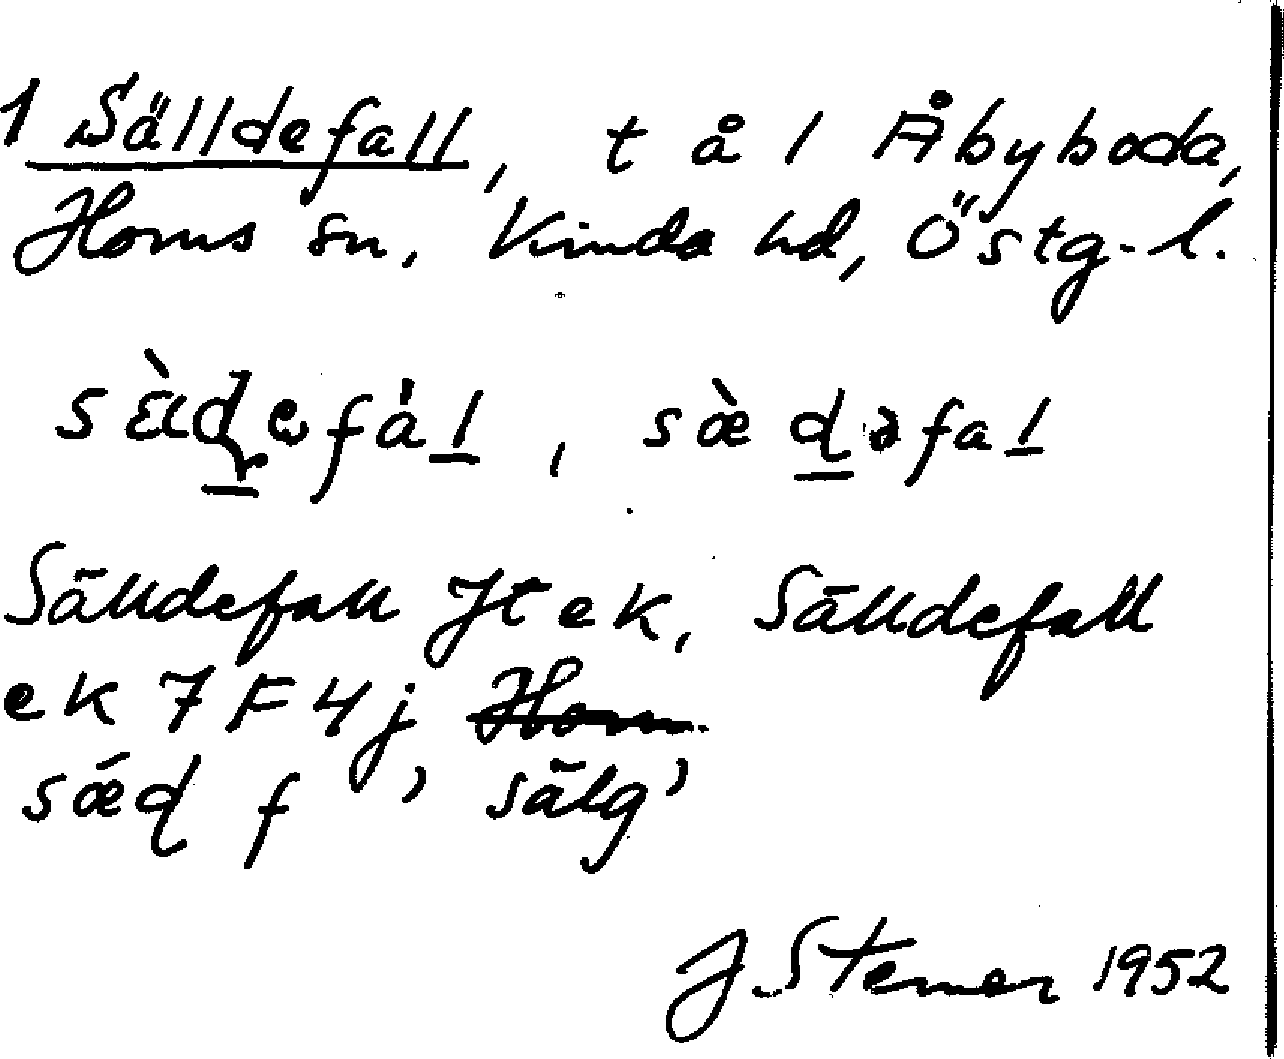 1 Sälldefall, t å l Åbyboda,
Horns sn, Kinda hd, Östg-l.
sὲɩḍefál, sæ̀ḍəfal
Sälldefall Jt ek, Sälldefall
ek 7F4j
sǽd f 'sälg'
J Sterner 1952